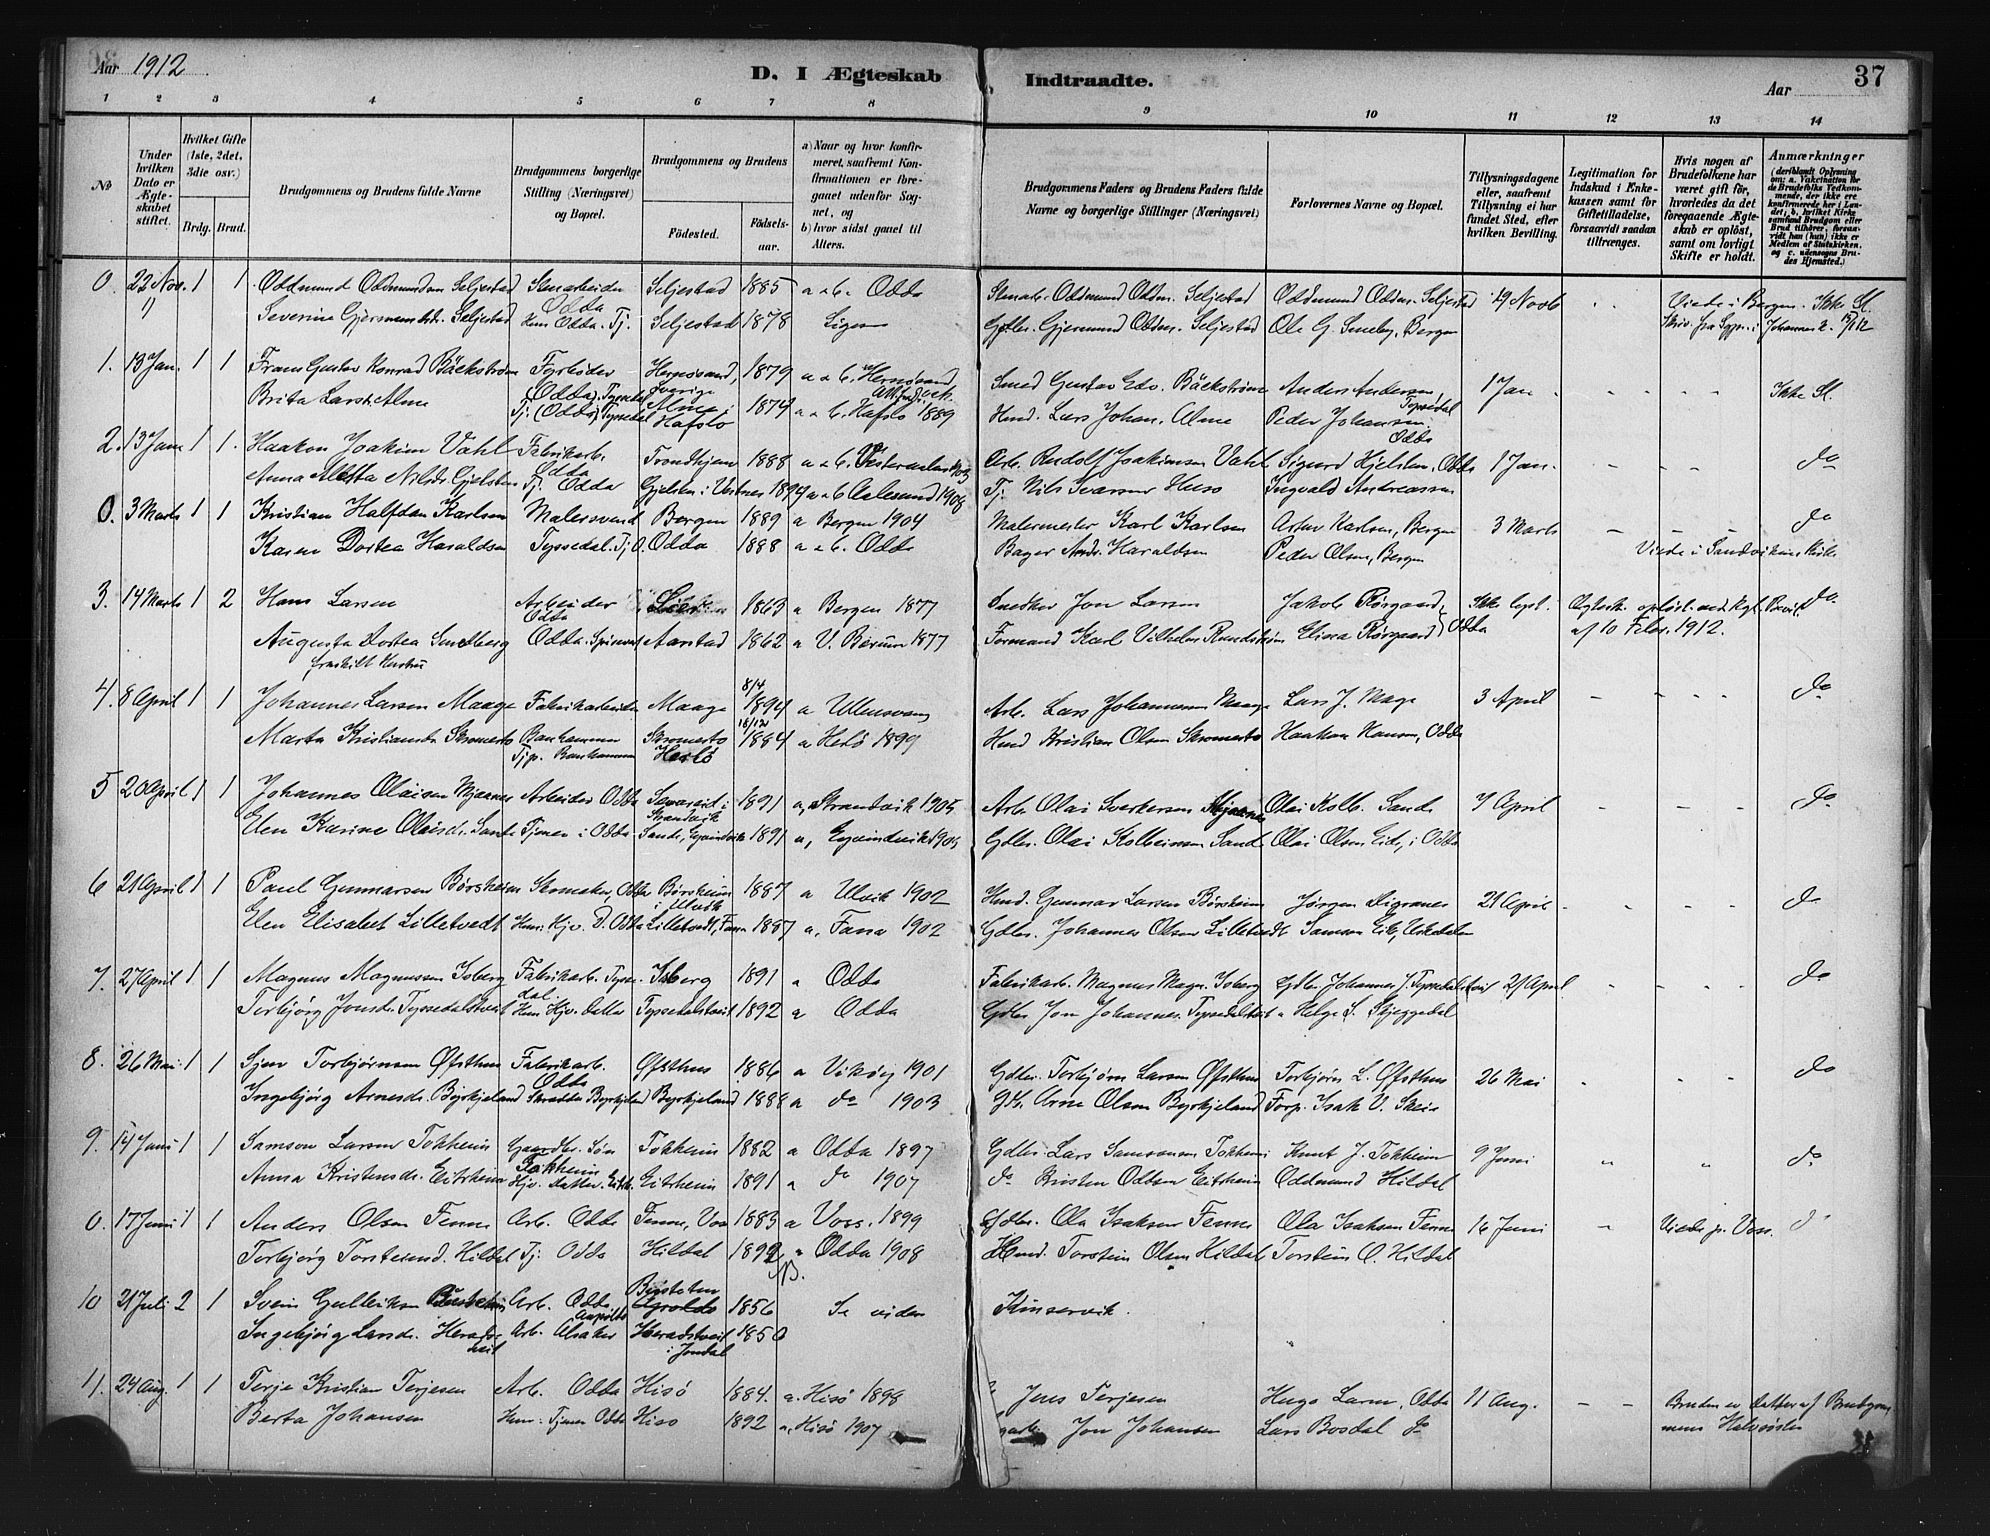 Aar 1912
D. I Ægteskab Indtraadte.
Aar 37
1 2 3 4 5 6 7 8 9 10 11 12 13 14
No
Under hvilken Dato er Ægteskabet stiftet.
Hvilket Gifte (1ste, 2det, 3die osv.)
Brdg. Brud.
Brudgommens og Brudens fulde Navne
Brudgommens borgerlige Stilling (Næringsvei) og Bopæl.
Brudgommens og Brudens
Fødested. Fødselsaar.
a) Naar og hvor konfirmeret, saafremt Konfirmationen er foregaaet udenfor Sognet, og
b) hvor sidst gaaet til Alters.
Brudgommens Faders og Brudens Faders fulde Navne og borgerlige Stillinger (Næringsvei)
Forlovernes Navne og Bopæl.
Tillysningsdagene eller, saafremt Tillysning ei har fundet Sted, efter hvilken Bevilling.
Legitimation for Indskud i Enkekassen samt for Giftetilladelse, forsaavidt saadan tiltrænges.
Hvis nogen af Brudefolkene har været gift før, hvorledes da det foregaaende Ægteskab er opløst, samt om lovligt Skifte er holdt.
Anmærkninger (deriblandt Oplysning om: a. Vakcination for de Brudefolks Vedkommende, der ikke ere konfirmerede her i Landet; b, hvilket Kirkesamfund Brudgom eller Brud tilhører, forsaavidt han (hun) ikke er Medlem af Statskirken, og c. udensogns Brudes Hjemsted.)
0. 22 Nov. 1 Oddmund Oddmundsen Seljestad Stenarbeider Odda Seljestad 1885 a & b. Odda Stenarb. Oddmund Oddm. Seljestad Oddmund Oddm. Seljestad 19 Novb Viede i Bergen. Ikke Sl.
1 Severine Gjermundsd. Seljestad Hus Odda. Tj. Seljestad 1878 Ligesaa Gdbr. Gjermund Oddm. Seljestad Ole G. Smeby, Bergen
1. 13 Jan. 1 1 Frans Gustav Konrad Bäckström Fyrbøder (Odda) Tyssedal Hernøsand, Sverige 1879 a & b. Hernøsand Smed Gustav Edv. Bäckström Anders Andersen, Tyssedal 1 Jan Ikke Sl.
Brita Larsd. Alme Tj. (Odda) Tyssedal Alme i Hafslo 1874 a & b. Hafslo 1889 Husd. Lars Johan. Alme Peder Johansen Odda
2. 13 Jan 1 1. Haakon Joakim Vahl Fabrikarb. Odda Trondhjem 1888 a & b. Vesteraalen Arb. Rudolf Joakimsen Vahl Sigurd Hjelsten, Odda 1 Jan. do
Anna Aletta Nilsd. Gjelsten Tj. Odda Gjelsten i Vestnes a & b Aalesund 1908 Tj. Nils Ivarsen Huso Ingvald Andreassen
0. 3 Marts 1 1 Kristian Halfdan Karlsen Malersvend Bergen 1889 a Bergen 1904 Malermester Karl Karlsen Artur Karlsen, Bergen 3 Marts do
Karen Dortea Haraldsen Tyssedal. Tj. O. Odda 1888 a & b. Odda Bager Andr. Haraldsen Peder Olsen, Bergen Viede i Sandvikens Kirke
3. 14 Marts 1 2 Hans Larsen Arbeider Odda 1863 a Bergen 1877 Snedker Jon Larsen Jakob Rørgaard, Ikke lyst. Ægtesk. opløst ved Kgl. Bevil. do
Augusta Dortea Sundberg Odda. Aarstad 1862 a V. Bærum 1877 Formand Karl Vilhelm Rundström Elina Rørgaard Odda af 10 Febr. 1912.
fraskilt Hustru
4. 8 April 1 1 Johannes Larsen Maage Fabrikarbeider Maage 8/4 1894 a Ullensvang Arb. Lars Johannesen Maage Lars J. Mage 3 April do
Marta Kristiansd. Skromesto Bankammen Tjp. Bankammen Skromesto Herlö 16/12 1884 a Herlö 1899 Husd Kristian Olsen Skromesto Haakon Hansen, Odda
5 20 April 1 1 Johannes Olaisen Mjaanes Arbeider Odda Sævareid i Strandvik 1891 a, Strandvik 1905 Arb. Olai Sverkersen Mjaanes Olai Kolb. Sande 7 April do
Elen Karine Olaisd. Sande Tjener i Odda Sande, Eyvindvik 1891 a, Eyvindvik 1905 Gdbr. Olai Kolbeinsen Sande Olai Olsen Eide, i Odda
6 21 April 1 1 Paul Gunnarsen Børsheim Skomaker, Odda Børsheim i Ulvik 1887 a Ulvik 1902 Husd. Gunnar Larsen Børsheim Jørgen Digranes 21 April do
Elen Elisabet Lilletvedt Hus. Hjv. D. Odda Lilletvedt, Fana 1887 a, Fana 1902 Gdbr. Johannes Olsen Lilletvedt Samson Eik,
7. 27 April 1 1 Magnus Magnussen Isberg Fabrikarb. Tyssedal. Isberg 1891 a Odda Fabrikarb. Magnus Magn. Isberg Gdbr. Johannes J. Tyssedalstveit 21 April do
Torbjørg Jonsd. Tyssedalstveit Hus. Hjv. datter Tyssedalstveit 1892 a Odda Gdbr Jon Johannes. Tyssedalstveit Helge S. Skjeggedal
8. 26 Mai 1 1 Sjur Torbjørnsen Øfsthus Fabrikarb. Odda Øfsthus 1886 a Vikøy 1901 Gdbr. Torbjørn Larsen Øfsthus Torbjørn L. Øfsthus 26 Mai do
Ingebjørg Arnesd. Byrkjeland Byrkjeland 1888 a do 1903 Arne Olsen Byrkjeland Forp. Isak V. Skeie
9. 14 Juni 1 1 Samson Larsen Tokheim Gaardbr. Søn Tokheim Tokheim 1882 a Odda 1897 Gdbr. Lars Samsonsen Tokheim Knut J. Tokheim 9 Juni do
Anna Kristensd. Eitrheim Hjv. datter. Eitrh. Eitrheim 1891 a do 1907 do Kristen Oddsen Eitrheim Oddmund Hildal
0. 17 Juni 1 1 Anders Olsen Fenne Arb. Odda Fenne, Voss 1883 a Voss. 1899 Gdbr. Ola Isaksen Fenne Ola Isaksen Fenne 16 Juni Viede p. Voss. do
Torbjørg Torsteinsd. Hildal Tj. Odda Hildal 1892 a Odda 1908 Husd. Torstein Olsen Hildal Torstein O. Hildal
10 21 Juli 2 1 Svein Gulleiksen Arb. Odda 1856 Se viden Kinservik.
Ingebjørg Larsd. Heradstveit Arb. Alsaker Heradstveit i Jondal 1850
11. 24 Aug. 1 1 Terje Kristian Terjesen Arb. Odda Hisö 1884. a. Hisö 1898 Jens Terjesen Hugo Larsen, Odda 11 Aug. Bruden er datter af Brudgommens Halvsøster
Berta Johansen Hus. Tjener Odda Hisö 1892 a. Hisö 1907 Jon Johansen Lars Bosdal do